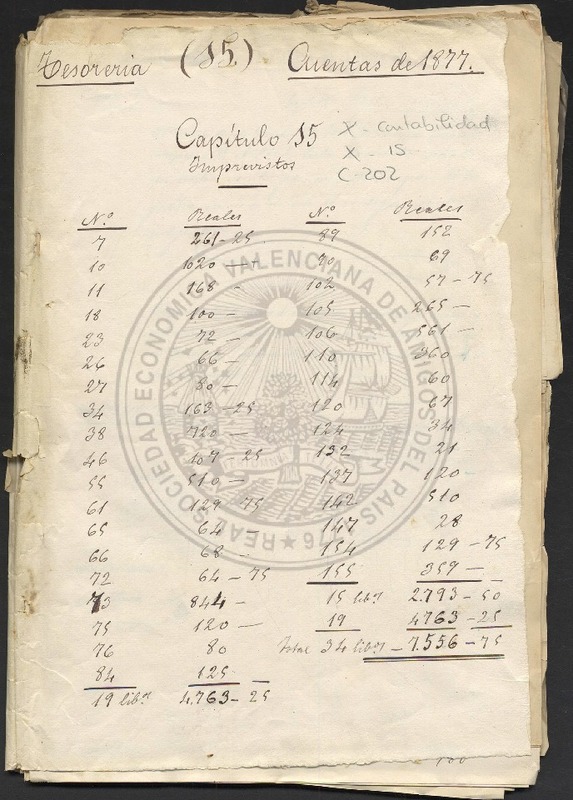 Tesoreria (15.) Cuentas de 1877.
Capítulo 15
Imprevistos
X - contabilidad
X - 15
C-202
N.º Reales N.º Reales
7 261-25 89 152
10 1020 - 90 69
11 168 - 102 57-75
18 100 - 105 265 -
23 72 - 106 561 -
26 66 - 110 360
27 80 - 114 60
34 163-25 120 67
38 720 - 124 34
46 107-25 132 21
55 510 - 137 120
61 129-75 142 510
65 64 - 147 28
66 68 - 154 129-75
72 64-75 155 359 -
73 844 - 15 lib.s 2.793-50
75 120 - 19 4763-25
76 80 Total 34 lib.s - 7.556-75
84 125 -
19 lib.s 4.763-25
REAL SOCIEDAD ECONOMICA VALENCIANA DE AMIGOS DEL PAIS 1776